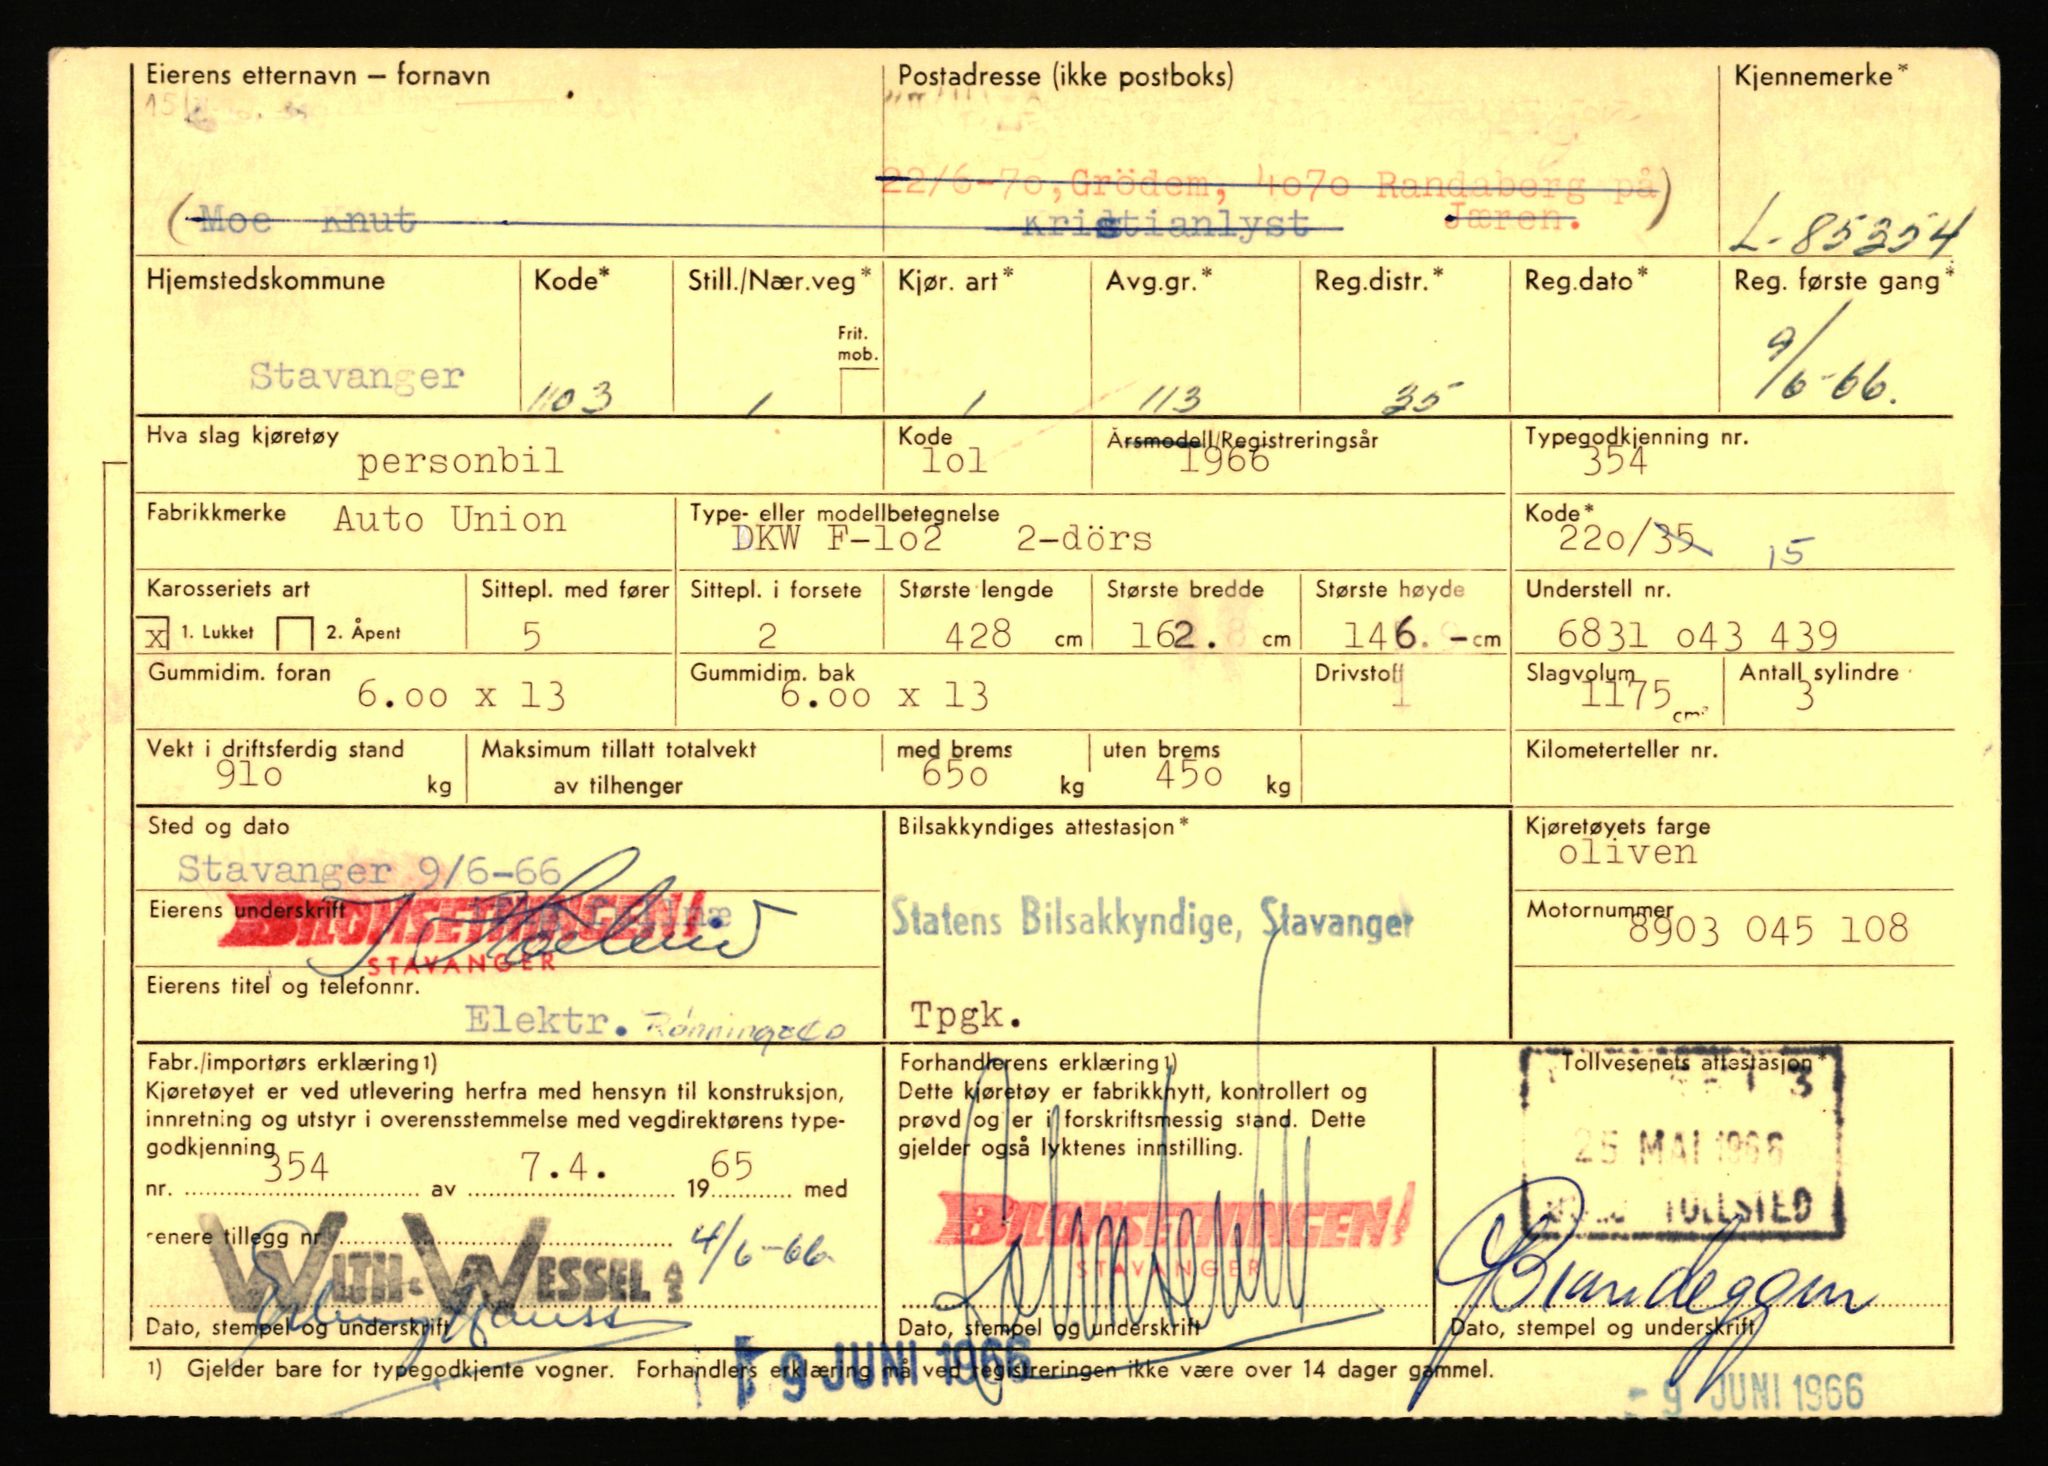 Eierens etternavn — fornavn Postadresse (ikke postboks) Kjennemerke*
22/6-70, Grödem, 4070 Randaberg på)
(Moe Knut Kristianlyst Jæren. L-85354
Hjemstedskommune Kode* Still./Nær.veg* Kjør. art* Avg.gr.* Reg.distr.* Reg.dato* Reg. første gang*
Frit. mob.
Stavanger 1103 1 1 113 35 9/6-66.
Hva slag kjøretøy Kode Årsmodell/Registreringsår Typegodkjenning nr.
personbil 1o1 1966 354
Fabrikkmerke Auto Union Type- eller modellbetegnelse Kode*
DKW F-1o2 2-dörs 22o/35 15
Karosseriets art Sittepl. med fører Sittepl. i forsete Største lengde Største bredde Største høyde Understell nr.
x 1. Lukket 2. Åpent 5 2 428 cm 162. cm 146.- cm 6831 o43 439
Gummidim. foran Gummidim. bak Drivstoff Slagvolum Antall sylindre
6.oo x 13 6.oo x 13 1 1175 cm³ 3
Vekt i driftsferdig stand Maksimum tillatt totalvekt med brems uten brems Kilometerteller nr.
91o kg av tilhenger 65o kg 45o kg
Sted og dato Bilsakkyndiges attestasjon* Kjøretøyets farge
Stavanger 9/6-66 oliven
Eierens underskrift BILOMSETNINGEN! Statens Bilsakkyndige, Stavanger Motornummer
STAVANGER 8903 045 108
Eierens titel og telefonnr.
Elektr. Tpgk.
Fabr./importørs erklæring1) Forhandlerens erklæring1) Tollvesenets attestasjon*
Kjøretøyet er ved utlevering herfra med hensyn til konstruksjon, Dette kjøretøy er fabrikknytt, kontrollert og
innretning og utstyr i overensstemmelse med vegdirektørens type- prøvd og er i forskriftsmessig stand. Dette
godkjenning gjelder også lyktenes innstilling. 25 MAI 1966
nr. 354 av 7.4. 1965 med
TOLLSTED
senere tillegg nr. 4/6-66 BILOMSETNINGEN!
WITH & WESSEL A/S STAVANGER Brandeggen
Dato, stempel og underskrift Dato, stempel og underskrift Dato, stempel og underskrift
- 9 JUNI 1966
1) Gjelder bare for typegodkjente vogner. Forhandlers erklæring må ved registreringen ikke være over 14 dager gammel.
- 9 JUNI 1966